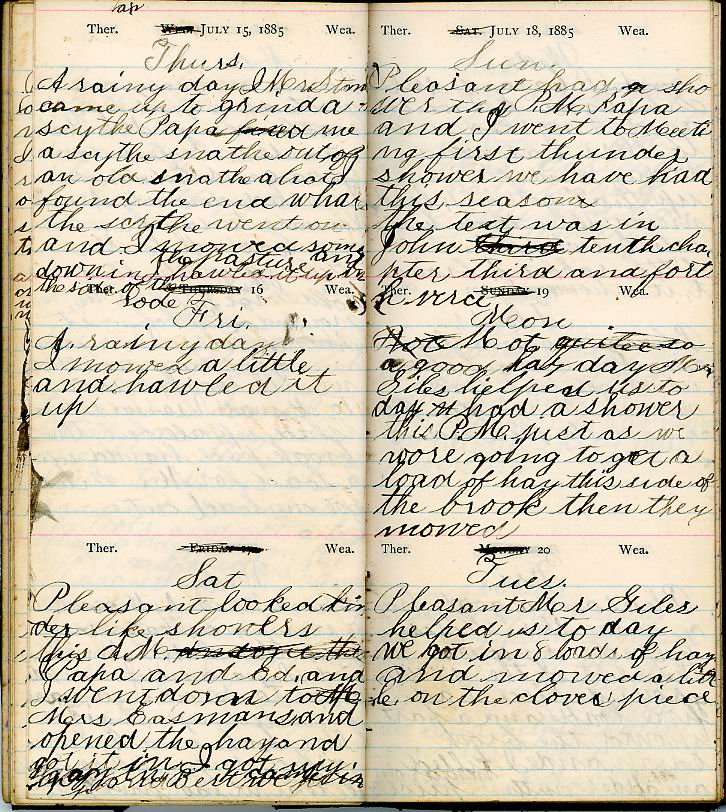 Ther. Wed. JULY 15, 1885 Wea.
Thurs.
A rainy day Mr
came up to grind a
scythe Papa fixed me
a scythe snathe out of
an old snathe
found the end whar
the scythe went on
and I mowed some
down in the pasture and
hawled it up on
the
lode
Ther. THURSDAY 16 Wea.
Fri.
A rainy day
I mowed a little
and hawled it
up
Ther. FRIDAY 17 Wea.
Sat
Pleasant looked kin
der like showers
this A.M.
Papa and Ed. and
I went down to
Mrs Easmans and
opened the hay and
got it in I got my
Ther. SAT. JULY 18, 1885 Wea.
Sun.
Pleasant had a sho
wer this P.M. Papa
and I went to Meeti
ng first thunder
shower we have had
this season
the text was in
John third tenth cha
pter third and fort
h verce
SUNDAY 19
Mon
Hot Hot quite so
a good hay day Mr
Giles helped us to
day had a shower
this P.M. just as we
wore going to get a
load of hay this side of
the brook then they
mowed
Ther. MONDAY 20 Wea.
Tues.
Pleasant Mr Giles
helped us to day
we got in 8 loads of hay
and mowed a litt
le on the clover piece